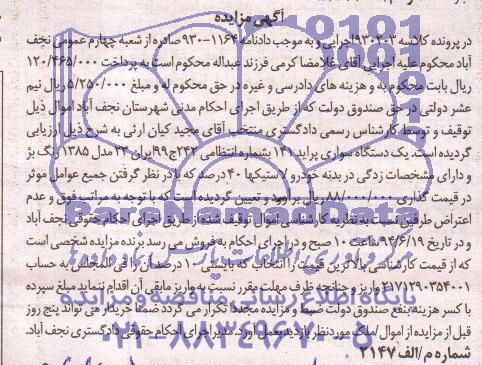 آگهی مزایده
در پرونده کلاسه ۹۳۰۲۰۳ اجرایی و به موجب دادنامه ۱۱۶۴-۹۳۰ صادره از شعبه چهارم عمومی نجف
آباد محکوم علیه اجرایی آقای غلامرضا کرمی فرزند عبداله محکوم است به پرداخت ۱۲۰/۴۶۵/۰۰۰
ریال بابت محکوم به و هزینه های دادرسی و غیره در حق محکوم له و مبلغ ۵/۲۵۰/۰۰۰ ریال نیم
عشر دولتی در حق صندوق دولت که از طریق اجرای احکام مدنی شهرستان نجف آباد اموال ذیل
توقیف و توسط کارشناس رسمی دادگستری منتخب آقای مجید کیان ارثی به شرح ذیل ارزیابی
گردیده است. یک دستگاه سواری پراید ۱۴۱ بشماره انتظامی ۲۴۲ج۹۹ ایران ۲۳ مدل ۱۳۸۵ رنگ بژ
و دارای مشخصات زدگی در بدنه خودرو لاستیکها ۴۰ درصد که با در نظر گرفتن جمیع عوامل موثر
در قیمت گذاری ۸۸/۰۰۰/۰۰۰ ریال برآورد و تعیین گردیده است که با توجه به مراتب فوق و عدم
اعتراض طرفین نسبت به نظریه کارشناسی اموال توقیف شده از طریق اجرای احکام حقوقی نجف آباد
و در تاریخ ۹۴/۶/۱۹ ساعت ۱۰ صبح در اجرای احکام به فروش می رسد برنده مزایده شخصی است
که از قیمت کارشناسی بالاترین قیمت را انتخاب که بایستی ۱۰ درصد آن را فی المجلس به حساب
۲۱۷۱۲۹۰۳۵۴۰۰۱ واریز و چنانچه ظرف مهلت مقرر نسبت به واریز مابقی آن اقدام ننماید مبلغ سپرده
با کسر هزینه بنفع صندوق دولت ضبط و مزایده مجددا تکرار می گردد ضمنا خریدار می تواند پنج روز
قبل از مزایده از اموال/ملک موردنظر بازدید بعمل آورد. مدیر اجرای احکام حقوقی دادگستری نجف آباد.
شماره م/الف ۲۱۴۷
پایگاه اطلاع رسانی مناقصه و مزایده
۰۲۱-۸۸۳۴۹۶۷۰-۵